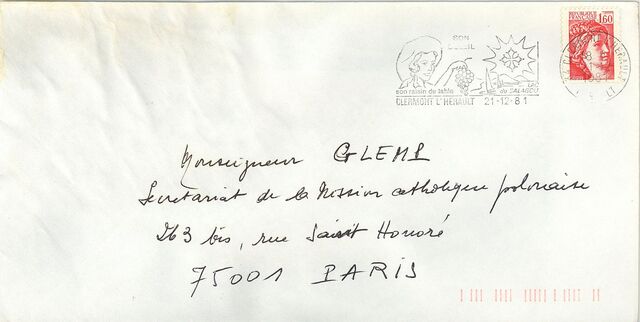 SON
SOLEIL
REPUBLIQUE
1,60
son raisin de table
du SALAGOU
CLERMONT L'HERAULT 21-12-81
Monseigneur GLEMP
Secretariat de la Mission catholique polonaise
263 bis, rue Saint Honoré
75001 PARIS